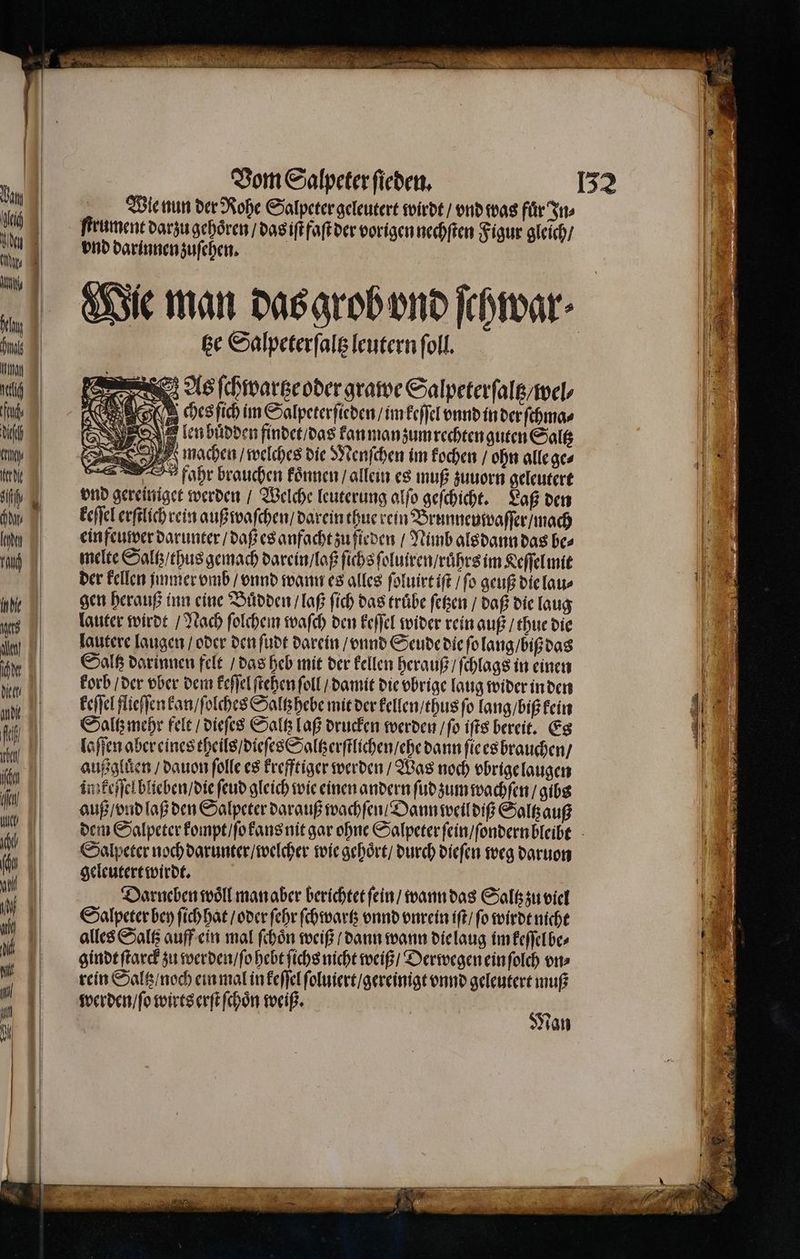 Vom Salpeter ſieden. 132
Wie nun der Rohe Salpeter geleutert wirdt / vnd was fuͤr In⸗
ſtrument darzu gehoͤren / das iſt faſt der vorigen nechſten Figur gleich /
vnd darinnen zuſehen.
Wie man das grob vnd ſchwar⸗
tze Salpeterſaltz leutern ſoll.
DAs ſchwartze oder grawe Salpeterſaltz / wel⸗
ches ſich im Salpeterſieden / im keſſel vnnd in der ſchma⸗
len buͤdden findet / das kan man zum rechten guten Saltz
machen / welches die Menſchen im kochen / ohn alle ge⸗
fahr brauchen koͤnnen / allein es muß zuuorn geleutert
vnd gereiniget werden / Welche leuterung alſo geſchicht. Laß den
keſſel erſtlich rein auß waſchen / darein thue rein Brunnenwaſſer / mach
ein feuwer darunter / daß es anfacht zu ſieden / Nimb als dann das be⸗
melte Saltz / thus gemach darein / laß ſichs ſoluiren / ruͤhrs im Keſſel mit
der kellen jmmer vmb / vnnd wann es alles ſoluirt iſt / ſo geuß die lau⸗
gen herauß inn eine Buͤdden / laß ſich das truͤbe ſetzen / daß die laug
lauter wirdt / Nach ſolchem waſch den keſſel wider rein auß / thue die
lautere laugen / oder den ſudt darein / vnnd Seude die ſo lang / biß das
Saltz darinnen felt / das heb mit der kellen herauß / ſchlags in einen
korb / der vber dem keſſel ſtehen ſoll / damit die vbrige laug wider in den
keſſel flieſſen kan / ſolches Saltz hebe mit der kellen / thus ſo lang / biß kein
Saltz mehr felt / dieſes Saltz laß drucken werden / ſo iſts bereit. Es
laſſen aber eines theils / dieſes Saltz erſtlichen / ehe dann ſie es brauchen /
außgluͤen / dauon ſolle es krefftiger werden / Was noch vbrige laugen
im keſſel blieben / die ſeud gleich wie einen andern ſud zum wachſen / gibs
auß / vnd laß den Salpeter darauß wachſen / Dann weil diß Saltz auß
dem Salpeter kompt / ſo kans nit gar ohne Salpeter ſein / ſondern bleibt
Salpeter noch darunter / welcher wie gehoͤrt / durch dieſen weg daruon
geleutert wirdt.
Darneben woͤll man aber berichtet ſein / wann das Saltz zu viel
Salpeter bey ſich hat / oder ſehr ſchwartz vnnd vnrein iſt / ſo wirdt nicht
alles Saltz auff ein mal ſchoͤn weiß / dann wann die laug im keſſel be⸗
gindt ſtarck zu werden / ſo hebt ſichs nicht weiß / Derwegen ein ſolch vn⸗
rein Saltz / noch ein mal in keſſel ſoluiert / gereinigt vnnd geleutert muß
werden / ſo wirts erſt ſchoͤn weiß.
Man